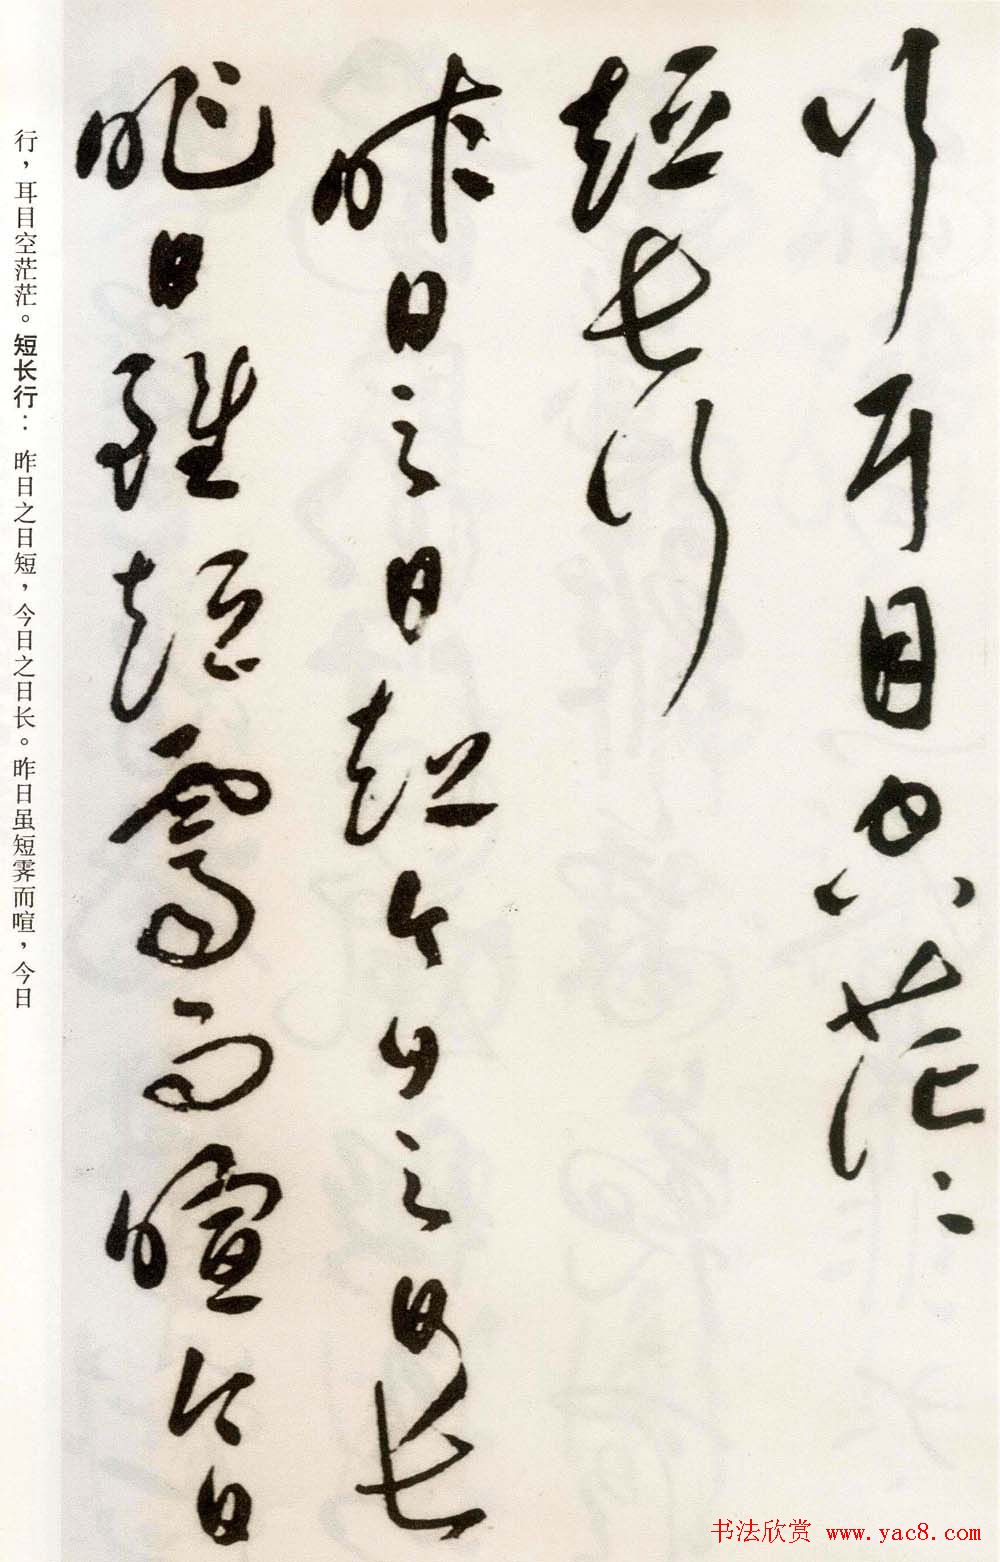 行耳目空茫〻
短长行
昨日之日短今日之日长
昨日虽短霁而暄今日
行，耳目空茫茫。短长行：昨日之日短，今日之日长。昨日虽短霁而暄，今日
书法欣赏 www.yac8.com